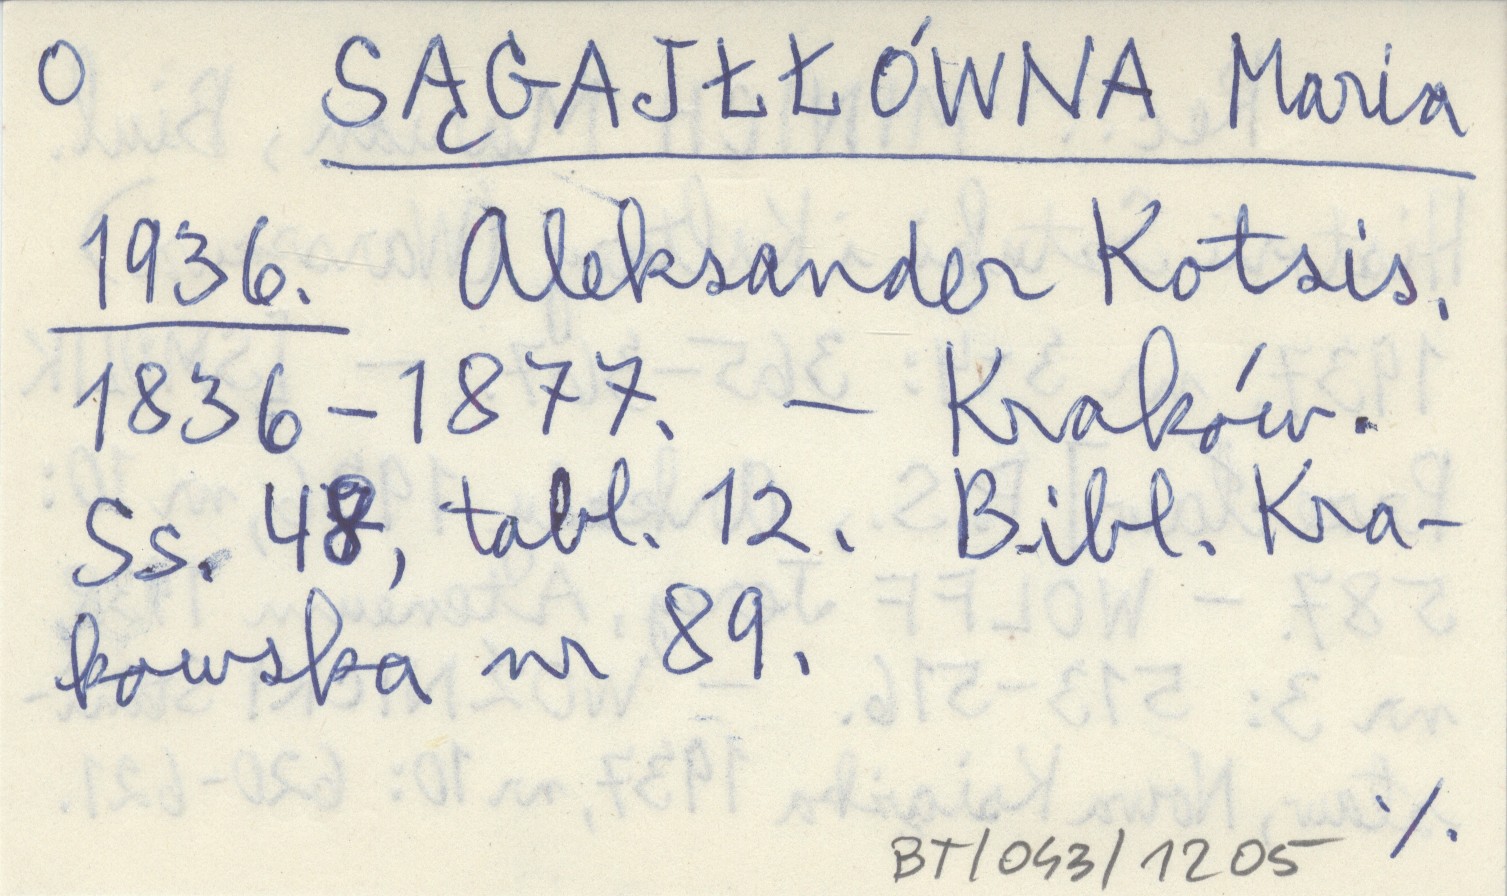 O SĄGAJŁŁÓWNA Maria
1936. Aleksander Kotsis.
1836-1877. – Kraków.
Ss. 48, tabl. 12. Bibl. Kra-
kowska nr 89.
·/.
BT/043/1205